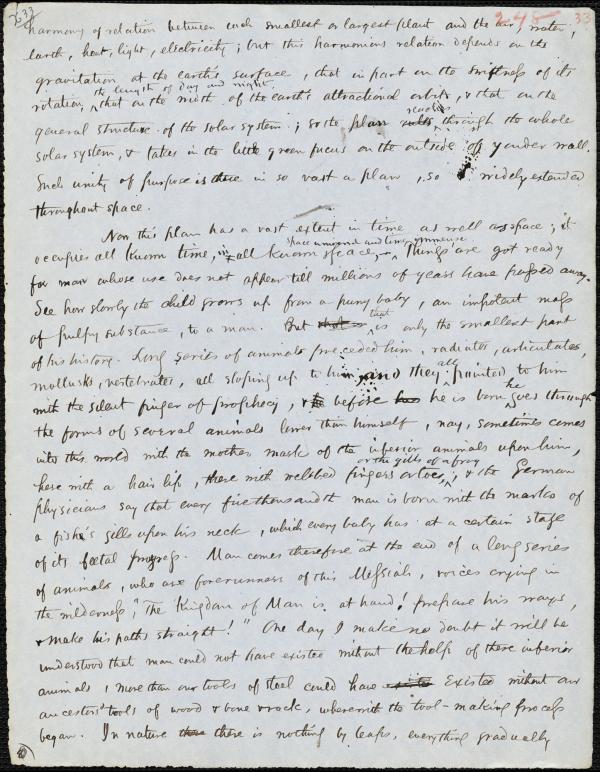 233
245 33
harmony of relation between each smallest or largest plant and the air, water,
earth, heat, light, electricity; but this harmonious relation depends on the
gravitation at the earth's surface, that in part on the swiftness of its
the length of day and night,
rotation, that on the width of the earth's attractional orbit, & that on the
reaches
general structure of the solar system; so the plan through the whole
solar system, & takes in the little green fucus on the outside of yonder wall.
Such unity of purpose is there in so vast a plan, so widely extended
throughout space.
Now this plan has a vast extent in time as well as space; it
space unmeasured and time immense
occupies all known time, in all known space. Things are got ready
for man whose use does not appear till millions of years have passed away.
See how slowly the child grows up from a puny baby, an impotent mass
that
of pulpy substance, to a man. But is only the smallest part
of his history. Long series of animals preceded him, radiates, articulates,
all
mollusks, vertebrates, all sloping up to him, and they pointed to him
he
with the silent finger of prophecy, & before he is born goes through
the forms of several animals lower than himself, nay, sometimes comes
into this world with the mother mark of the inferior animals upon him,
or the gills of a frog
here with a hair lip, there with webbed fingers or toes, & the German
Physicians say that every five thousandth man is born with the marks of
a fish's gills upon his neck, which every baby has at a certain stage
of its fœtal progress. Man comes therefore at the end of a long series
of animals, who are forerunners of this Messiah, voices crying in
the wilderness, "The Kingdom of Man is at hand! prepare his ways,
& make his paths straight!" One day I make no doubt it will be
understood that man could not have existed without the help of these inferior
animals, more than our tools of steel could have existed without our
ancestors' tools of wood & bone & rock, wherewith the tool-making process
began. In nature there is nothing by leaps, everything gradually